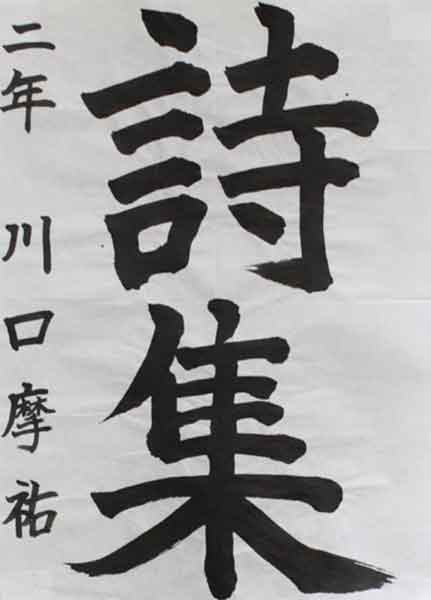 詩集
二年 川口摩祐